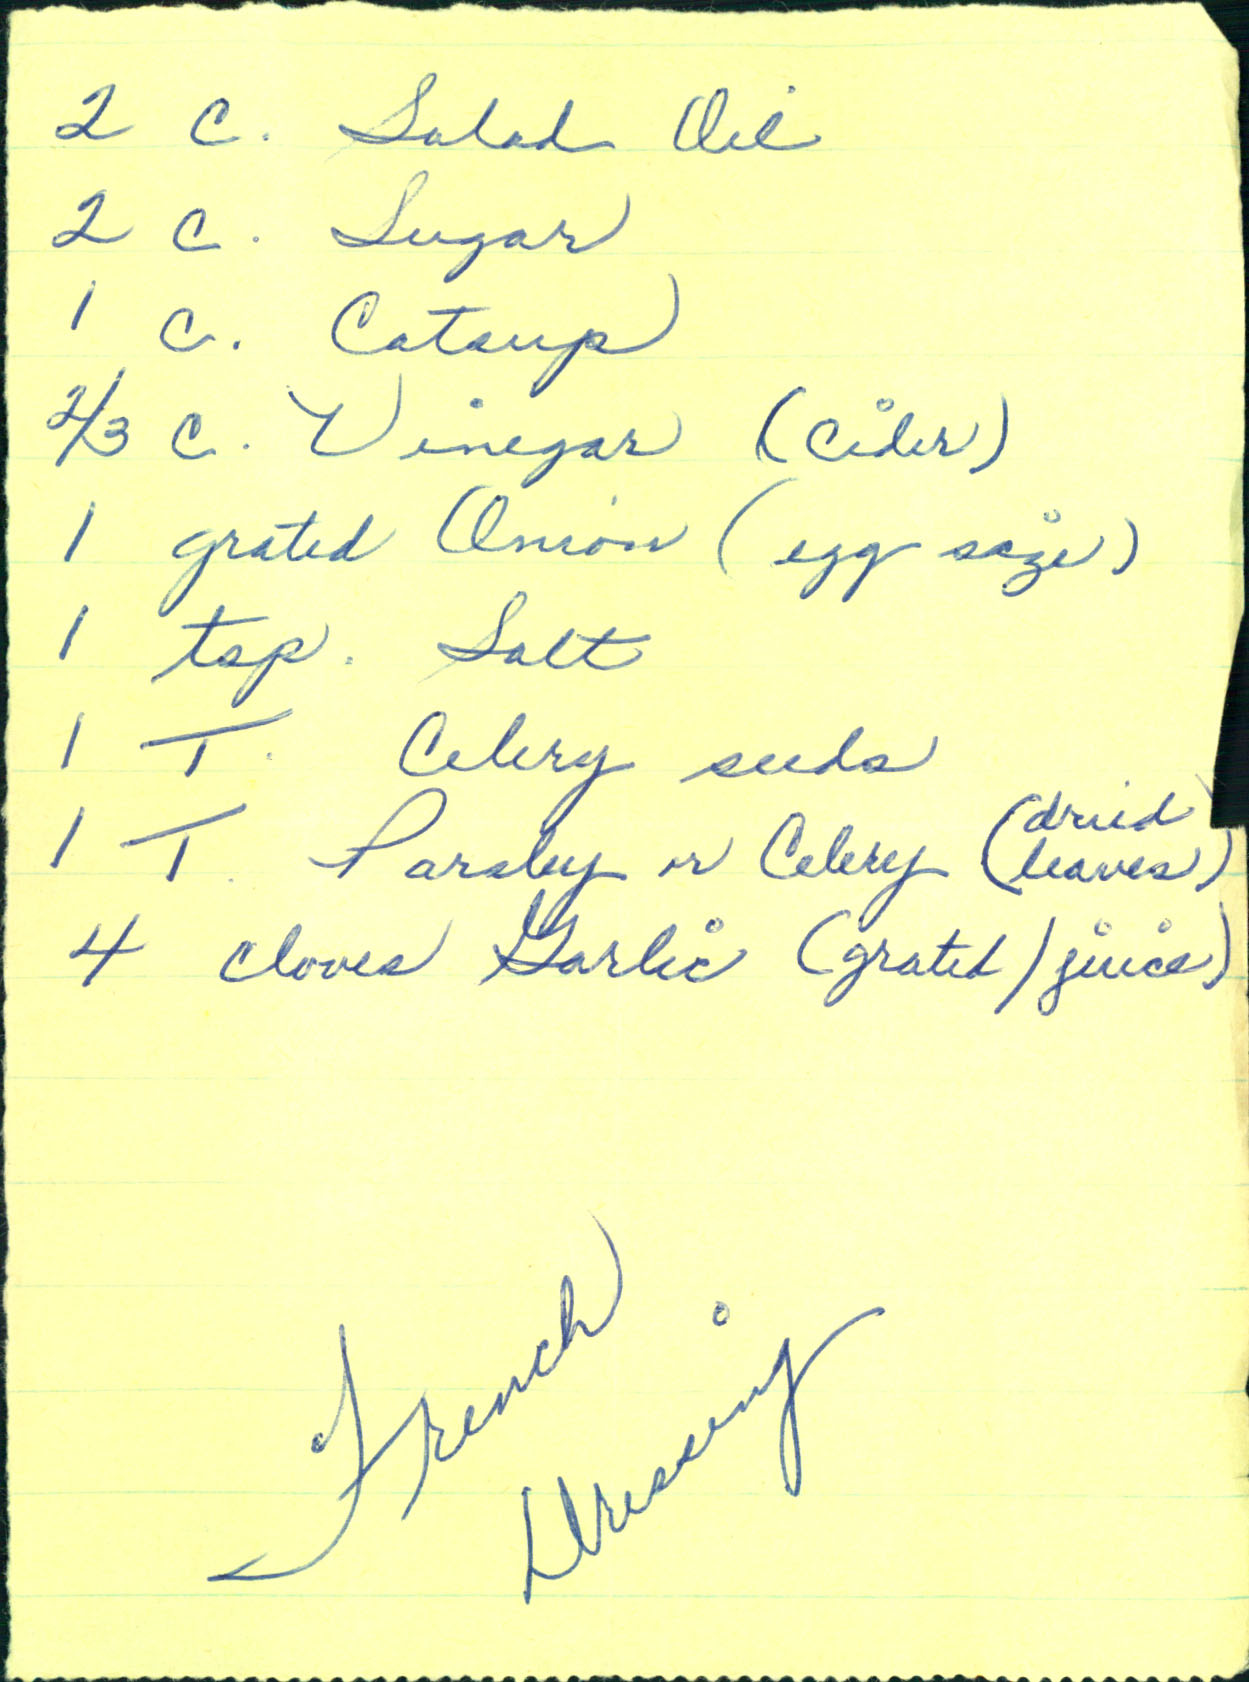 2 c. Salad Oil
2 c. Sugar
1 c. Catsup
2/3 c. Vinegar (cider)
1 grated Onion (egg size)
1 tsp. Salt
1 T. Celery seeds
1 T. Parsley or Celery (dried leaves)
4 cloves Garlic (grated/juice)
French
Dressing